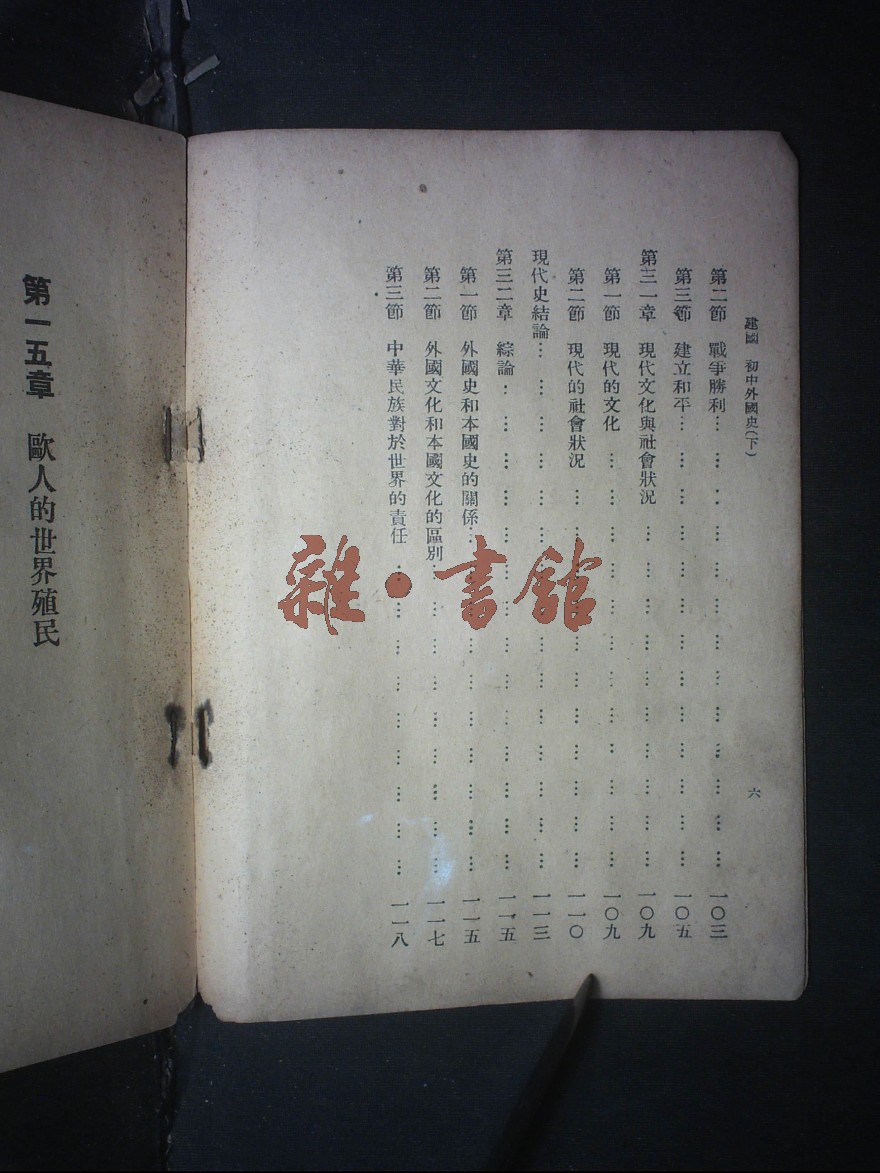 建國 初中外國史(下)
六
第二節 戰爭勝利…………一〇三
第三節 建立和平…………一〇五
第三一章 現代文化與社會狀况…………一〇九
第一節 現代的文化…………一〇九
第二節 現代的社會狀况…………一一〇
現代史結論…………一一三
第三二章 綜論…………一一五
第一節 外國史和本國史的關係…………一一五
第二節 外國文化和本國文化的區別…………一一七
第三節 中華民族對於世界的責任…………一一八
第一五章 歐人的世界殖民
雜·書舘